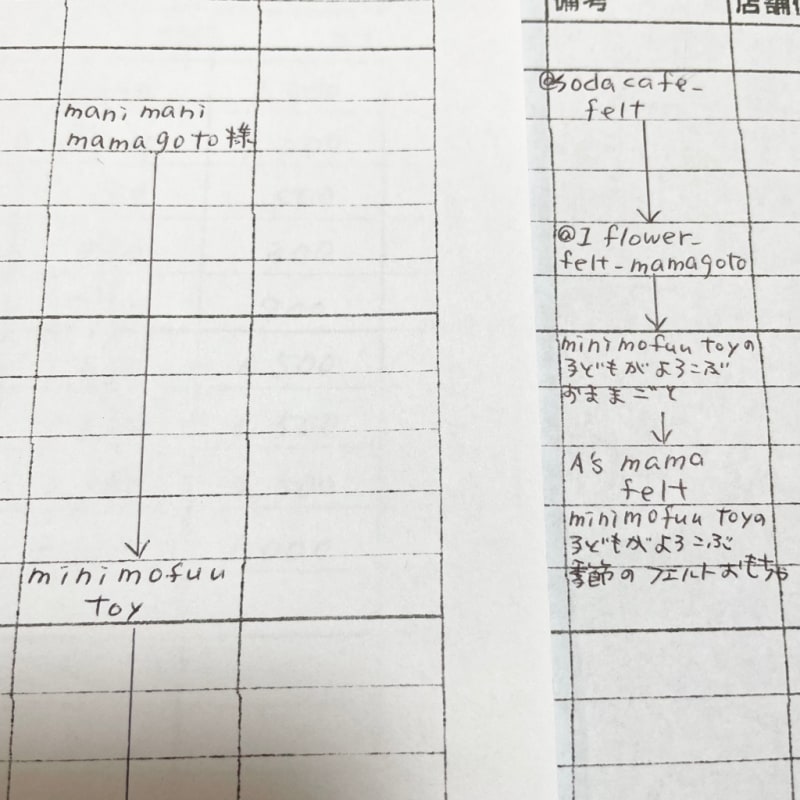 mani mani
mamagoto様
minimofuu
toy
備考
@sodacafe_
felt
@I flower_
felt_mamagoto
minimofuu toyの
子どもがよろこぶ
おままごと
A's mama
felt
minimofuu toyの
子どもがよろこぶ
季節のフェルトおもちゃ